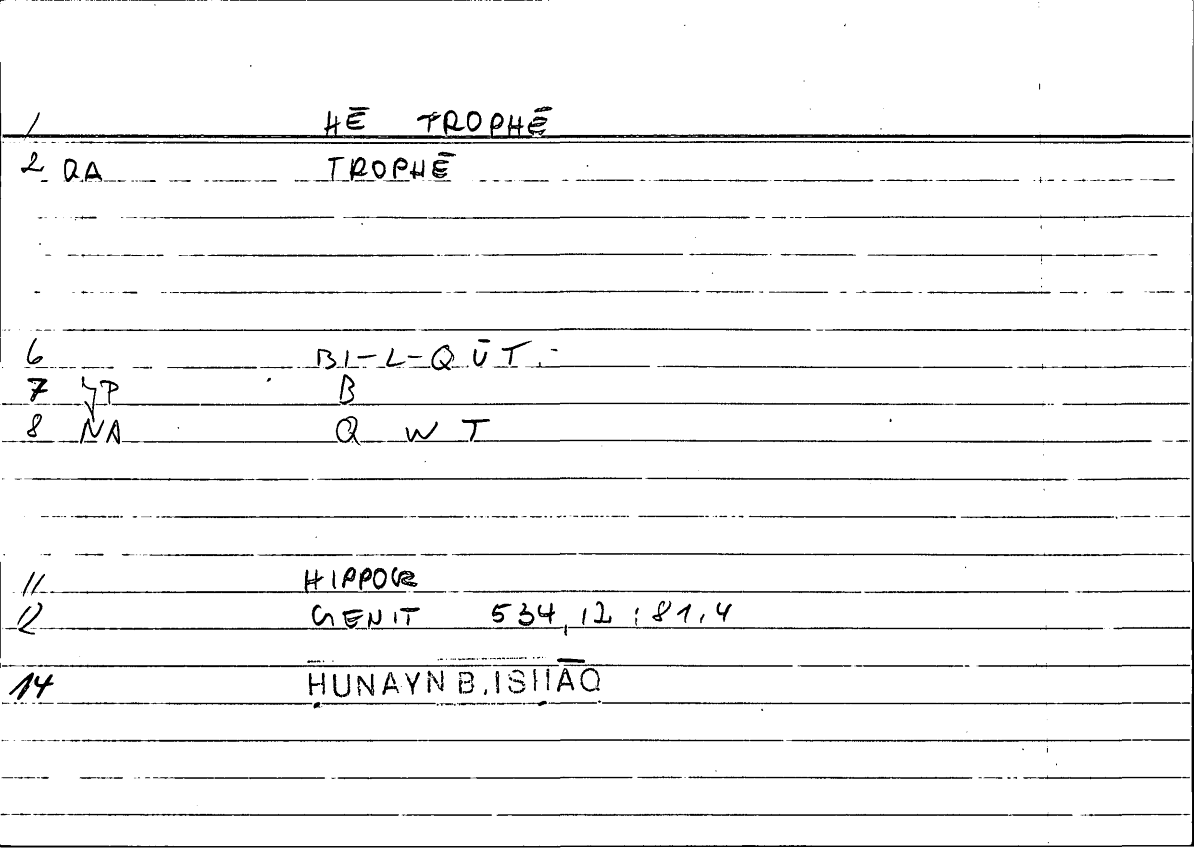 1 HĒ TROPHĒ
2 QA TROPHĒ
6 BI-L-QŪT.-
7 YP B
8 NA Q W T
11 HIPPOCR
12 GENIT 534,12 ; 81,4
14 ḤUNAYN B. ISḤĀQ